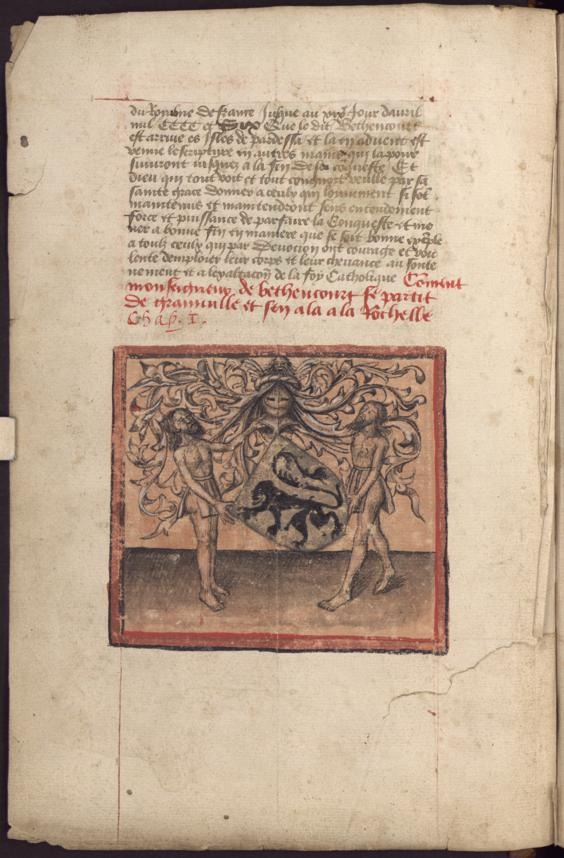 du Royaume de france Jusque au xixe Jour dauril
mil CCCC et Six Que le dit Bethencourt
est arriue es Isles de pardessa et la en aduient est
venue lescripture en autres mains qui la pour
suiuront Jusques a la fin de sa conqueste Et
dieu qui tout voit et tout congnoit veulle par sa
sainte grace donner a ceulx qui loiaument si sont
maintenus et maintendront sens entendement
force et puissance de parfaire la Conqueste et me
ner a bonne fin en maniere que se soit bonne exemple
a touls ceulx qui par Deuocion ont courage et vou
lente demploier leur corps et leur cheuance au soute
nement et a lexaltacion de la foy Catholique Coment
monseigneur de bethencourt se partit
de grainuille et sen ala a la Rochelle
Chap. I.